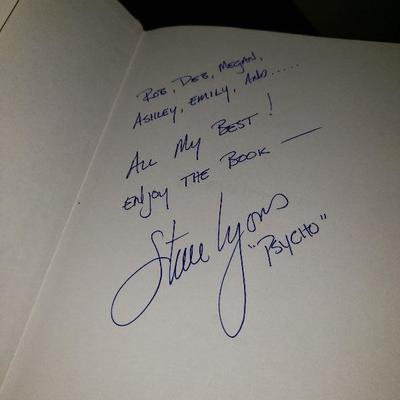 Rob, Deb, Megan,
Ashley, Emily, And.....
All My Best!
Enjoy The Book —
Steve Lyons
"Psycho"